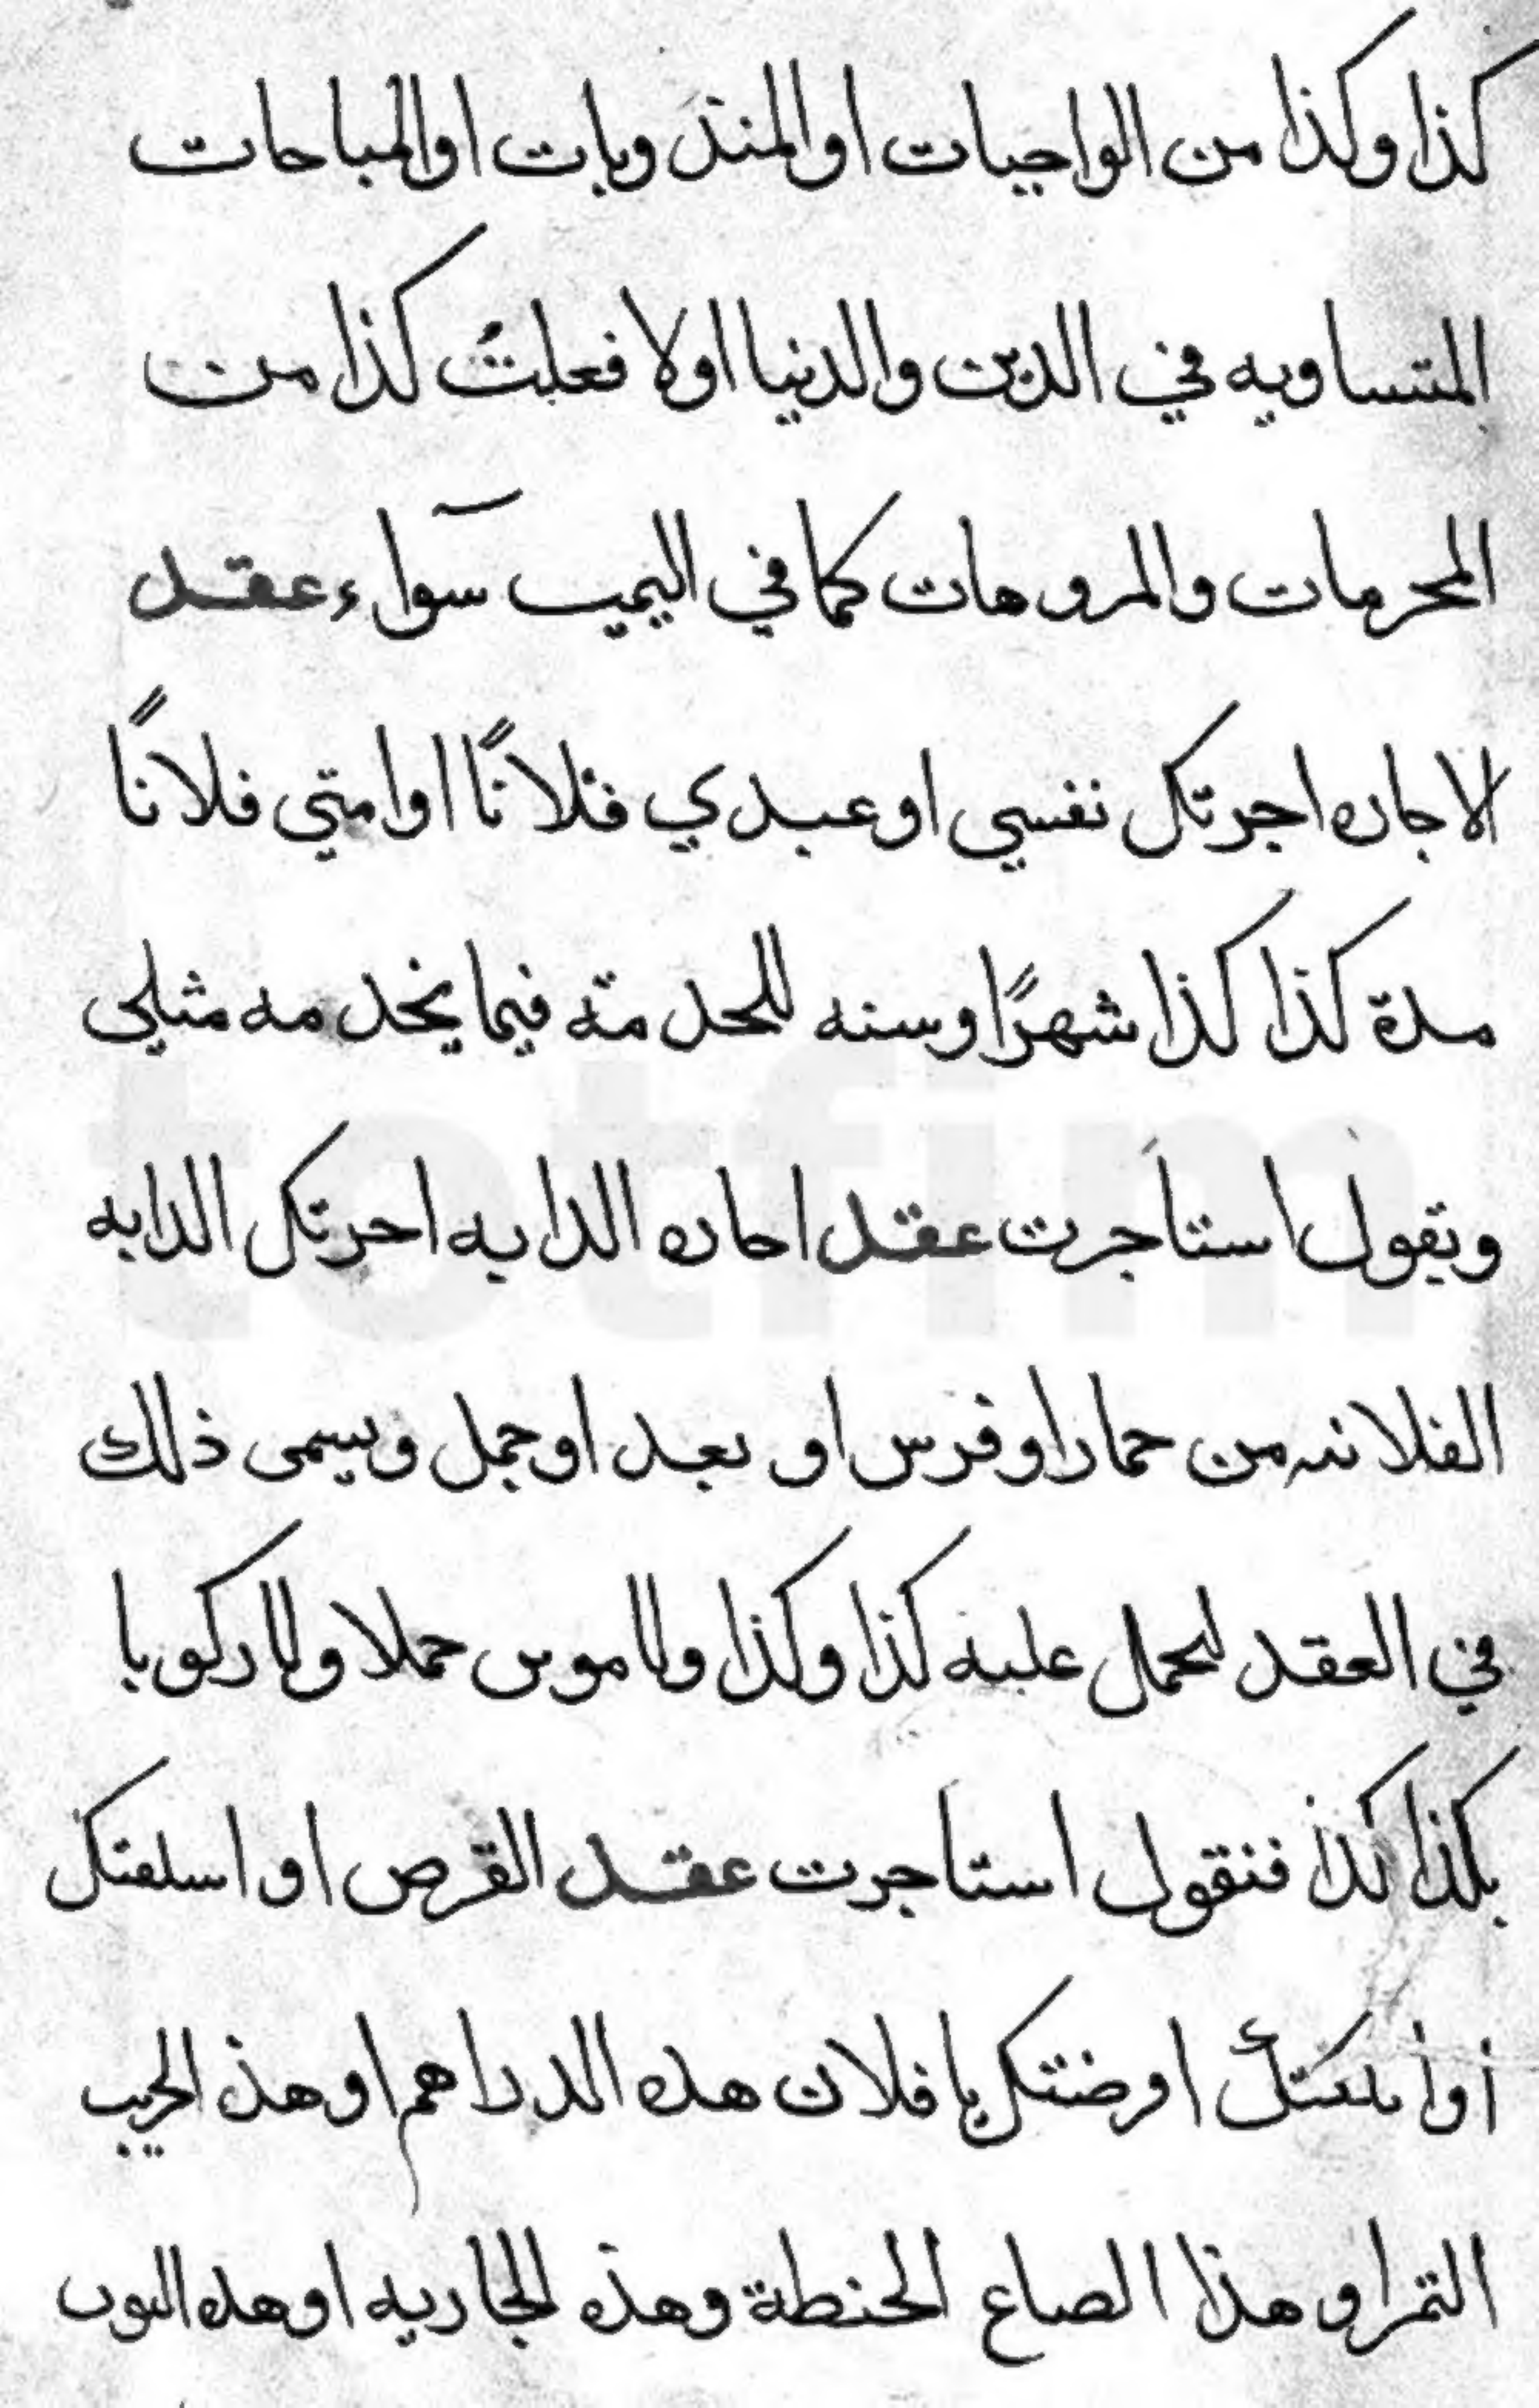 كذا وكذا من الواجبات او المندوبات او المباحات
المتساويه في الدين والدنيا اولا فعلتُ كذا من
المحرمات والمروهات كما في اليمين سوآء عقد
الاجاره اجرتك نفسي او عبدي فلانًا او امتي فلانًا
مدة كذا كذا شهرًا وسنه للخدمته فيما يخدمه مثلي
ويقول استأجرت عقد احاره الدابه احرتك الدابه
الفلانه من حمار او فرس او بعد او جمل ويسمى ذلك
في العقد لحمل عليه كذا وكذا حملا ولا ركوبا
بكذا كذا فنقول استاجرت عقد القرض او اسلفتك
أو اوضتك يا فلان هده الدراهم او هذ
التمر او هذا الصاع الحنطة وهذه الجاريه او هده الثوب
totfim